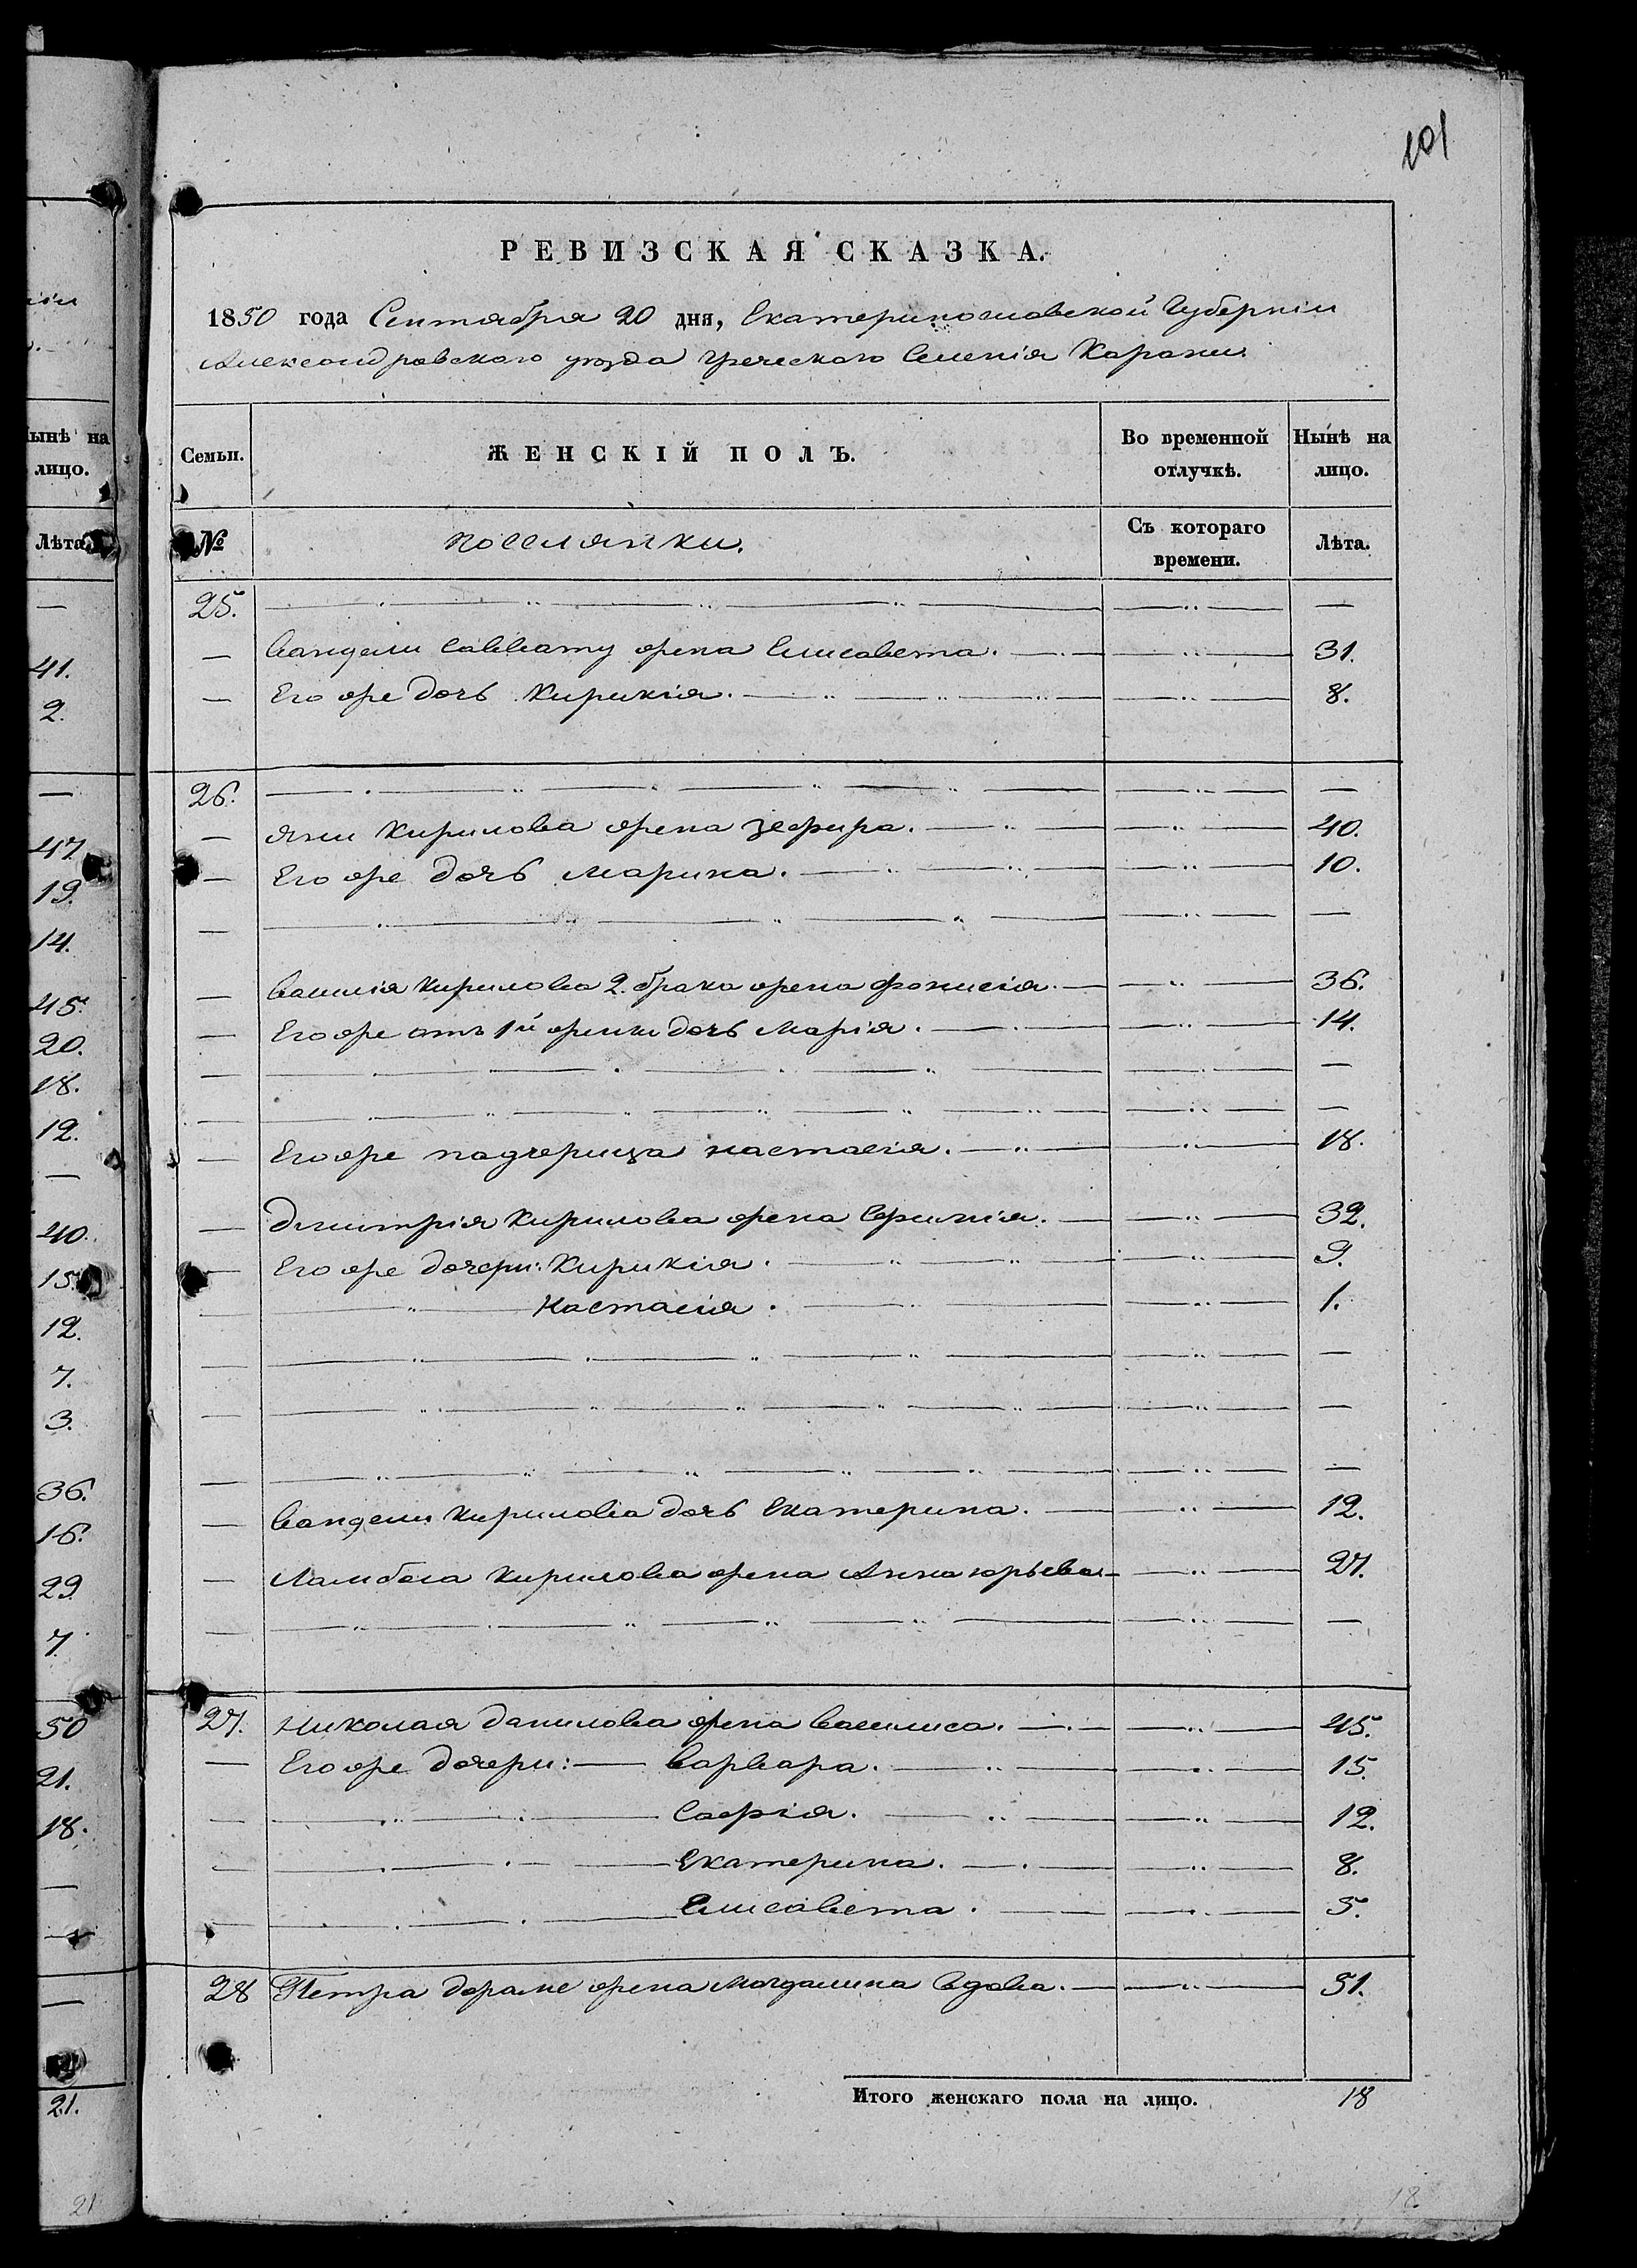 101
РЕВИЗСКАЯ СКАЗКА.
1850 года Сентября 20 дня, Екатеринославской Губерніи
Александровскаго уезда Греческаго Селенія Карани
Семьи. ЖЕНСКІЙ ПОЛЪ. Во временной отлучкѣ. Нынѣ на лицо.
№ поселянки. Съ котораго времени. Лѣта.
25. — — —
— Вангели Саввату жена Елисавета. — 31.
— Его же дочь Кирикія. — 8.
26. — — —
— Яни Кирилова жена Зефира. — 40.
— Его же дочь Марина. — 10.
— — — —
— Василія Кирилова 2. брака жена Фонисія. — 36.
— Его же отъ 1й жены дочь Марія. — 14.
— — — —
— — — —
— Его же падчерица Настасія. — 18.
— Дмитрія Кирилова жена Ефимія. — 32.
— Его же дочери: Кирикія. — 9.
— Настасія. — 1.
— — — —
— — — —
— — — —
— Вангели Кирилова дочь Екатерина. — 12.
— Ламбела Кирилова жена Анна Юрьева — 27.
— — — —
27. Николая Данилова жена Василиса. — 45.
— Его же дочери: — Варвара. — 15.
— Софія. — 12.
— Екатерина. — 8.
— Елисавета. — 5.
28 Петра жена Магдалина вдова. — 51.
Итого женскаго пола на лицо. 18
18
ыпѣ на
лицо.
Лѣта
—
41.
2.
—
47
19.
14.
45.
20.
18.
12.
—
40.
15.
12.
7.
3.
36.
16.
29
7.
50
21.
18.
—
—
—
21.
21